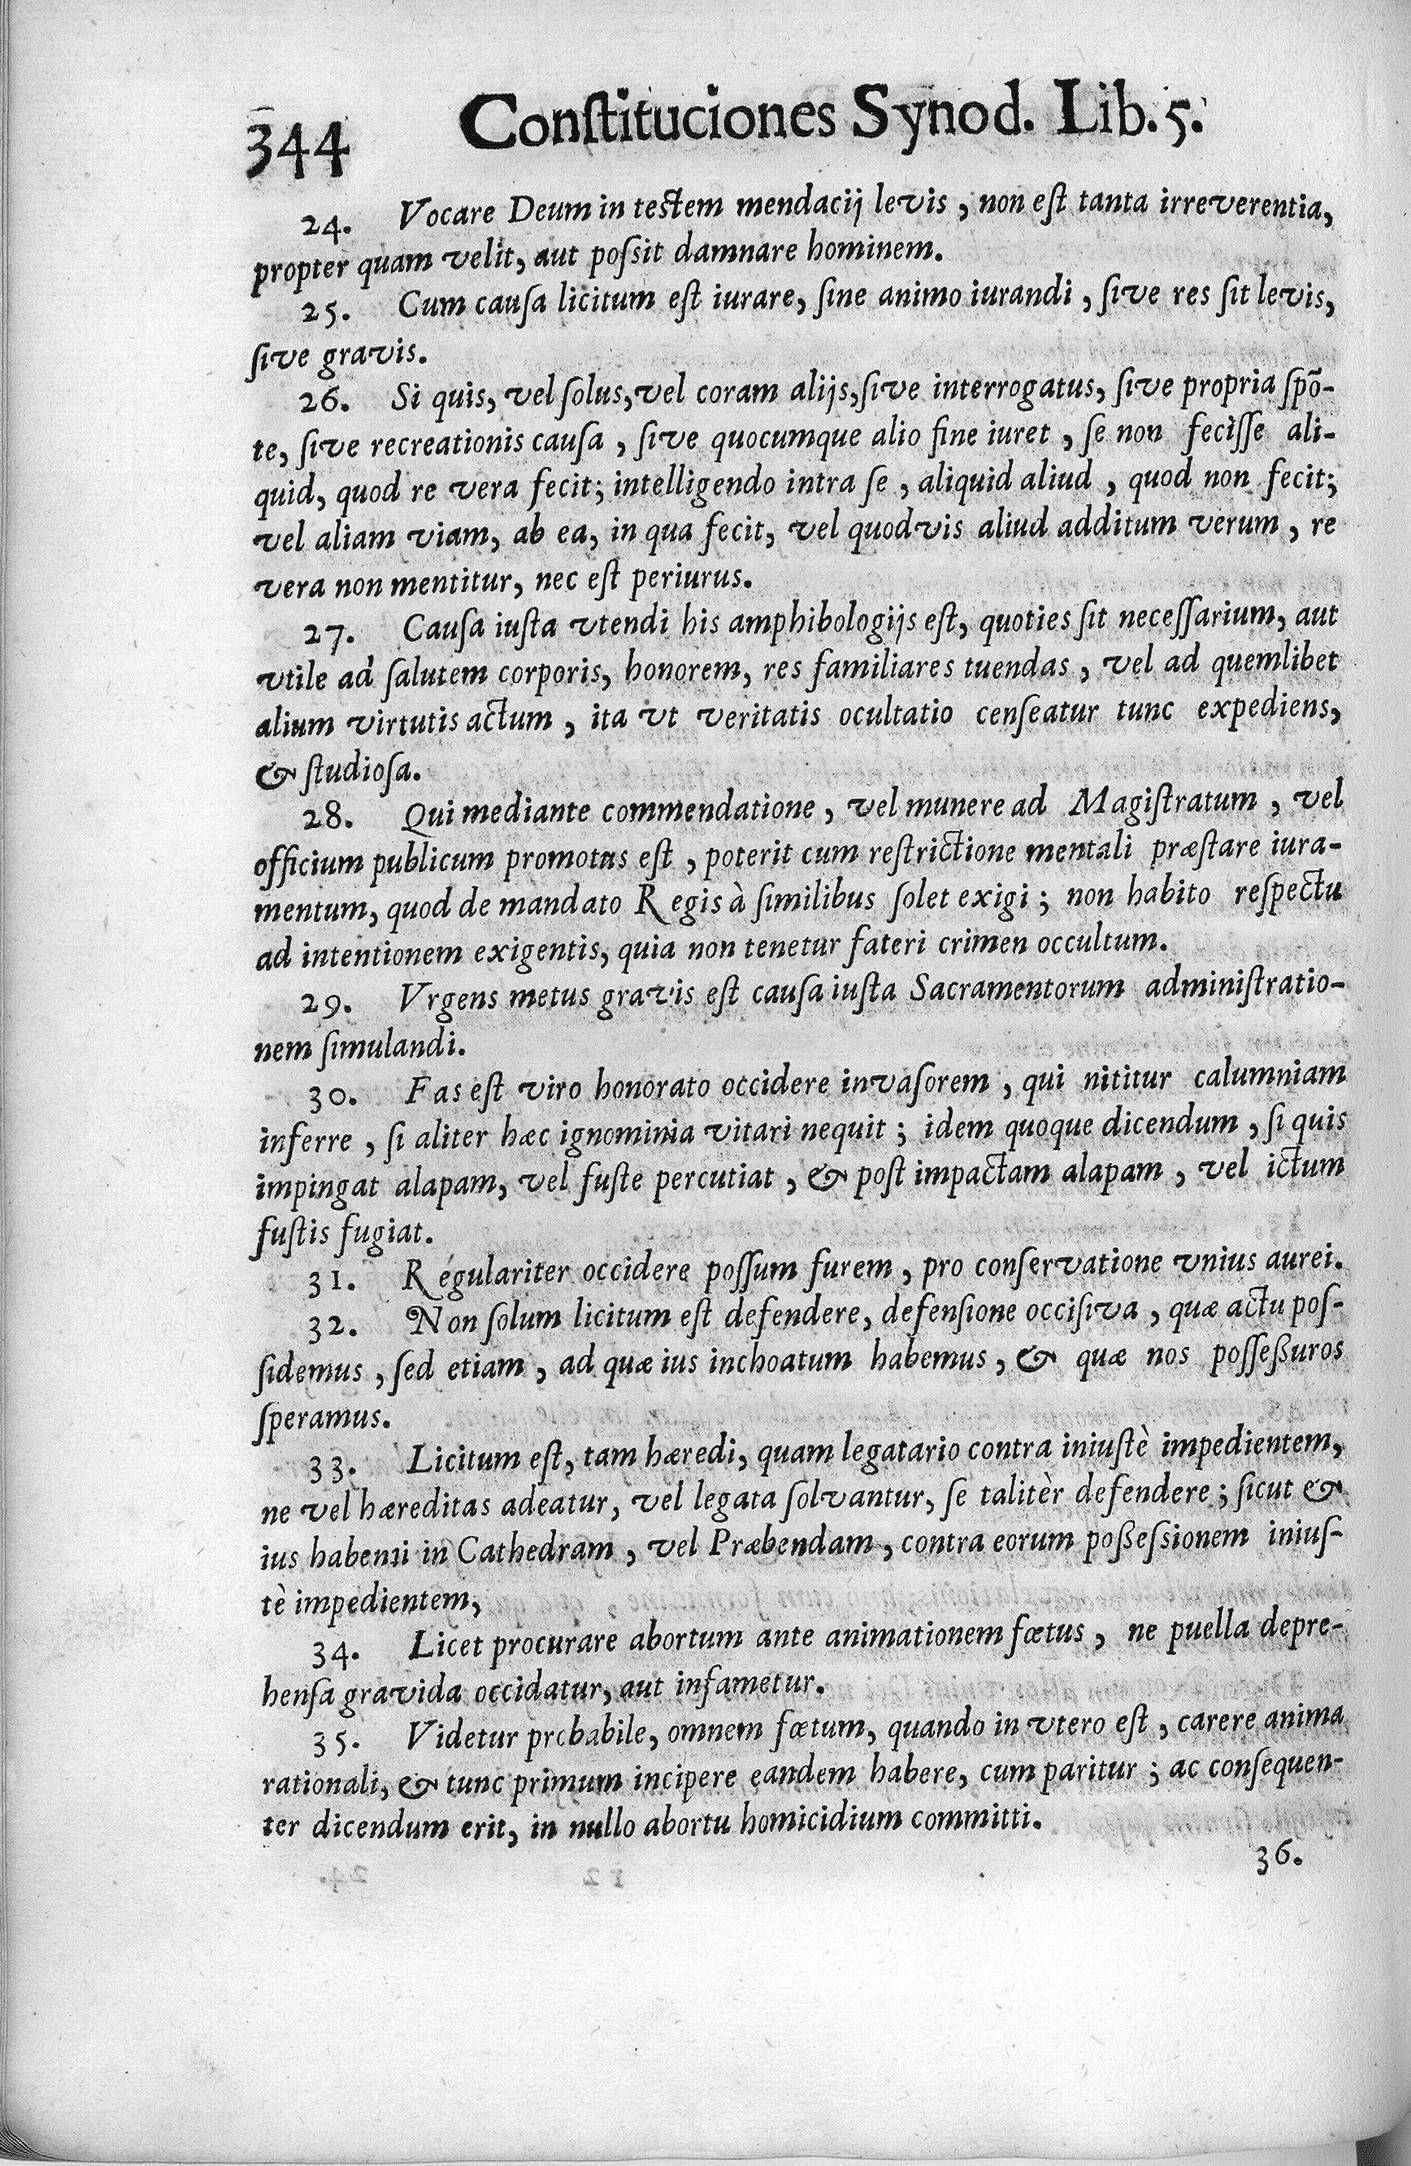 344 Constituciones Synod. Lib. 5.
24. Vocare Deum in testem mendacij levis, non est tanta irreverentia,
propter quam velit, aut possit damnare hominem.
25. Cum causa licitum est iurare, sine animo iurandi, sive res sit levis,
sive gravis.
26. Si quis, vel solus, vel coram alijs, sive interrogatus, sive propria spõ-
te, sive recreationis causa, sive quocumque alio fine iuret, se non fecisse ali-
quid, quod re vera fecit; intelligendo intra se, aliquid aliud, quod non fecit;
vel aliam viam, ab ea, in qua fecit, vel quodvis aliud additum verum, re
vera non mentitur, nec est periurus.
27. Causa iusta vtendi his amphibologijs est, quoties sit necessarium, aut
vtile ad salutem corporis, honorem, res familiares tuendas, vel ad quemlibet
alium virtutis actum, ita vt veritatis ocultatio censeatur tunc expediens,
& studiosa.
28. Qui mediante commendatione, vel munere ad Magistratum, vel
officium publicum promotus est, poterit cum restrictione mentali præstare iura-
mentum, quod de mandato Regis à similibus solet exigi; non habito respectu
ad intentionem exigentis, quia non tenetur fateri crimen occultum.
29. Vrgens metus gravis est causa iusta Sacramentorum administratio-
nem simulandi.
30. Fas est viro honorato occidere invasorem, qui nititur calumniam
inferre, si aliter hæc ignominia vitari nequit; idem quoque dicendum, si quis
impingat alapam, vel fuste percutiat, & post impactam alapam, vel ictum
fustis fugiat.
31. Regulariter occidere possum furem, pro conservatione vnius aurei.
32. Non solum licitum est defendere, defensione occisiva, quæ actu pos-
sidemus, sed etiam, ad quæ ius inchoatum habemus, & quæ nos possessuros
speramus.
33. Licitum est, tam hæredi, quam legatario contra iniustè impedientem,
ne vel hæreditas adeatur, vel legata solvantur, se talitèr defendere; sicut &
ius habenti in Cathedram, vel Præbendam, contra eorum possessionem inius-
tè impedientem,
34. Licet procurare abortum ante animationem fœtus, ne puella depre-
hensa gravida occidatur, aut infametur.
35. Videtur probabile, omnem fœtum, quando in vtero est, carere anima
rationali, & tunc primum incipere eandem habere, cum paritur; ac consequen-
ter dicendum erit, in nullo abortu homicidium committi.
36.